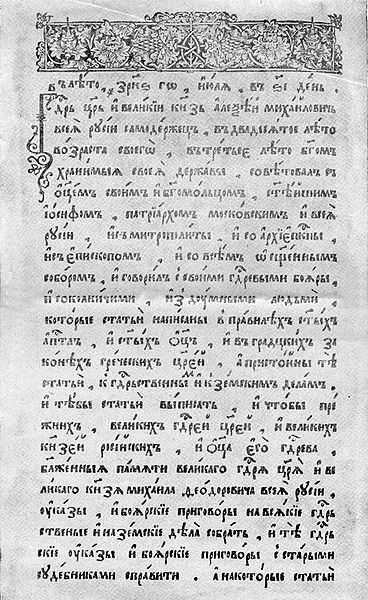 въ лѣто, ҂зрн҃ѕ го, и҆юлѧ, въ ѕ҃і день.
Гд҃рь цр҃ь и҆ великїи кн҃зь А҆леѯѣи михаиловичь
всеѧ̀ рꙋсїи самодержец, въ двадесѧтое лѣто
возраста своегѡ̀, въ третьее лѣто бг҃ом
хранимыѧ своеѧ̀ державы, совѣтовал съ
ѻ҆ц҃емъ своим и҆ бг҃омольцом, ст҃ѣишим
і҆ѡ́сифом, патрїа́рхом московским и҆ всеѧ̀
рꙋсїи, и҆ съ митрополиты, и҆ со а҆рхїепⷭ҇кпы
и҆ съ є҆пископом, и҆ со всѣм ѡ҆сщ҃еннымъ
соборѡм, и҆ говорил с своими гдⷭ҇рвыми боѧры,
и҆ соколничими, и҆ з дꙋмными людьми,
которые статьи написаны в правилѣхъ ст҃ыхъ
а҆пⷭ҇тлъ, и҆ ст҃ыхъ ѻ҆ц҃ъ, и҆ въ градцкихъ за
конѣхъ греческихъ цр҃еи, а҆ пристоины тѣ
статьи, к гдⷭ҇рьственнымъ и҆ к земским дѣлам,
и҆ тѣбы статьи выписать, и҆ чтобы пре
жнихъ, великихъ гд҃реи цр҃еи, и҆ великихъ
кн҃зеи росїискихъ, и҆ ѻ҆ц҃а є҆го̀ гдⷭ҇рева,
блаженныѧ памѧти великаго гдⷭ҇рѧ цр҃ѧ и҆ ве
ликаго кн҃зѧ михаила ѳеодоровича всеѧ̀ рꙋсїи,
ᲂу҆казы, и҆ боѧрскїе приговоры на всѧкїе гдⷭ҇рь
ственые и҆ на земскїе дѣла собрать, и҆ тѣ гдⷭ҇рь
скїе ᲂу҆казы и҆ боѧрскїе приговоры с старыми
сꙋдебниками справити. а҆ на которые статьи